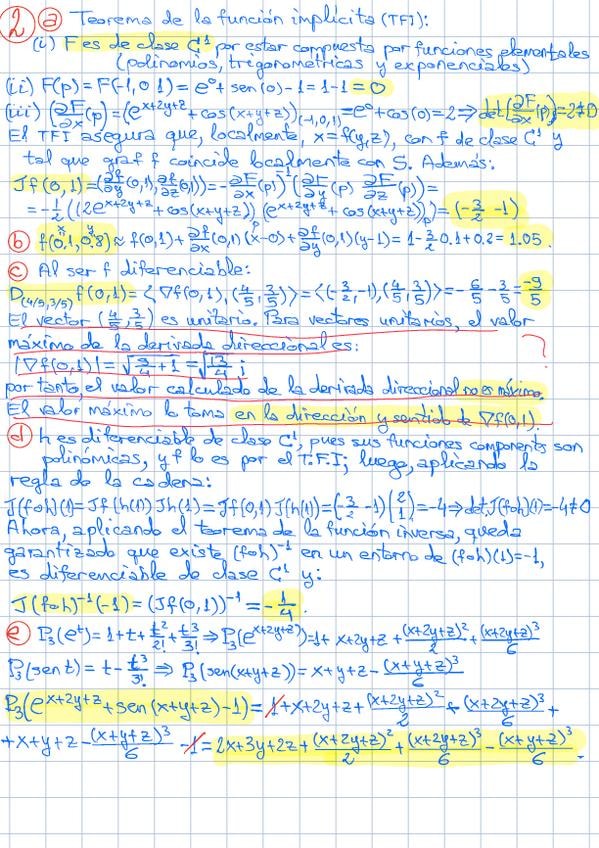 2 a Teorema de la función implícita (TFI):
(i) F es de clase C¹ por estar compuesta por funciones elementales
(polinomios, trigonométricas y exponenciales)
(ii) F(p) = F(-1,0,1) = e⁰ + sen(0) - 1 = 1 - 1 = 0
(iii) (∂F/∂x (p)) = (e^(x+2y+z) + cos(x+y+z))_(-1,0,1) = e⁰ + cos(0) = 2 ⇒ det(∂F/∂x (p)) = 2 ≠ 0
El TFI asegura que, localmente, x = f(y,z), con f de clase C¹ y
tal que graf f coincide localmente con S. Además:
Jf(0,1) = (∂f/∂y (0,1), ∂f/∂z (0,1)) = -∂F/∂x (p)⁻¹ (∂F/∂y (p) ∂F/∂z (p)) =
= -1/2 ((2e^(x+2y+z) + cos(x+y+z))_p (e^(x+2y+z) + cos(x+y+z))_p) = (-3/2 -1)
b f(0,1, 0,8) ≈ f(0,1) + ∂f/∂x (0,1)(x-0) + ∂f/∂y (0,1)(y-1) = 1 - 3/2 0.1 + 0.2 = 1.05.
c Al ser f diferenciable:
D_(4/5,3/5) f(0,1) = ⟨∇f(0,1), (4/5, 3/5)⟩ = ⟨(-3/2, -1), (4/5, 3/5)⟩ = -6/5 - 3/5 = -9/5
El vector (4/5, 3/5) es unitario. Para vectores unitarios, el valor
máximo de la derivada direccional es:
|∇f(0,1)| = √(9/4 + 1) = √(13/4) ;
por tanto, el valor calculado de la derivada direccional no es máximo.
El valor máximo lo toma en la dirección y sentido de ∇f(0,1).
d h es diferenciable de clase C¹, pues sus funciones components son
polinómicas, y f lo es por el T.F.I; luego, aplicando la
regla de la cadena:
J(f∘h)(1) = Jf(h(1)) Jh(1) = Jf(0,1) J(h(1)) = (-3/2 -1)(2 1) = -4 ⇒ det J(f∘h)(1) = -4 ≠ 0
Ahora, aplicando el teorema de la función inversa, queda
garantizado que existe (f∘h)⁻¹ en un entorno de (f∘h)(1) = -1,
es diferenciable de clase C¹ y:
J(f∘h)⁻¹(-1) = (Jf(0,1))⁻¹ = -1/4.
e P₃(e^t) = 1 + t + t²/2! + t³/3! ⇒ P₃(e^(x+2y+z)) = 1 + x+2y+z + (x+2y+z)²/2 + (x+2y+z)³/6
P₃(sen t) = t - t³/3! ⇒ P₃(sen(x+y+z)) = x+y+z - (x+y+z)³/6
P₃(e^(x+2y+z) + sen(x+y+z) - 1) = 1 + x+2y+z + (x+2y+z)²/2 + (x+2y+z)³/6 +
+ x+y+z - (x+y+z)³/6 - 1 = 2x+3y+2z + (x+2y+z)²/2 + (x+2y+z)³/6 - (x+y+z)³/6.